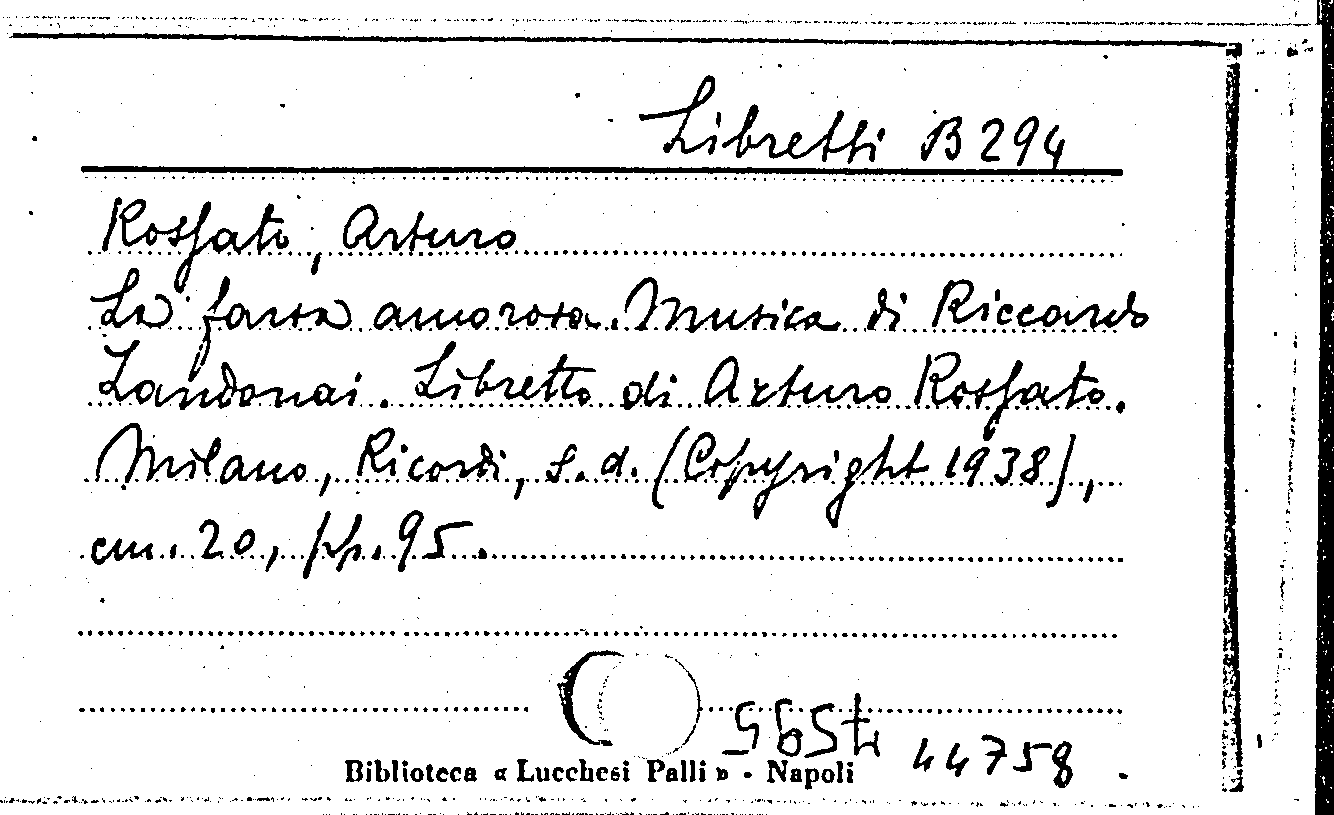 Libretti B 294
Rossato, Arturo
La farsa amorosa. Musica di Riccardo
Zandonai. Libretto di Arturo Rossato.
Milano, Ricordi, s.d. (Copyright 1938),
cm. 20, pp. 95.
44758
Biblioteca « Lucchesi Palli » - Napoli